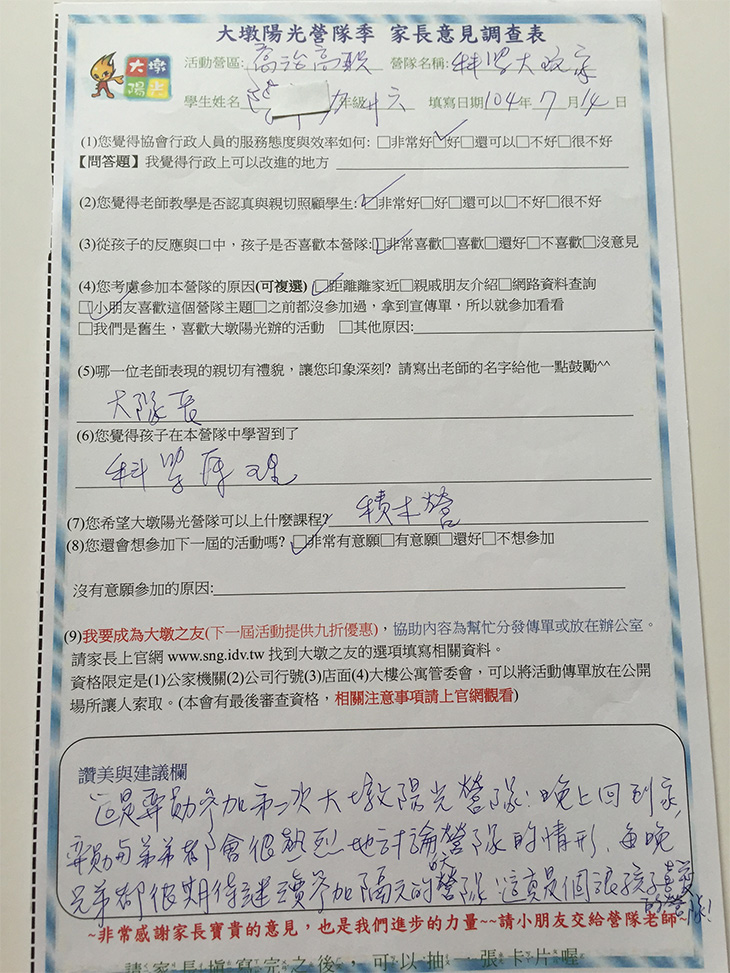 大墩陽光營隊季 家長意見調查表
大墩
陽光
活動營區: 喬治高職 營隊名稱: 科學大玩家
學生姓名 年級 升六 填寫日期 104 年 7 月 14 日
(1)您覺得協會行政人員的服務態度與效率如何: □非常好□好□還可以□不好□很不好
【問答題】我覺得行政上可以改進的地方
(2)您覺得老師教學是否認真與親切照顧學生: □非常好□好□還可以□不好□很不好
(3)從孩子的反應與口中，孩子是否喜歡本營隊:□非常喜歡□喜歡□還好□不喜歡□沒意見
(4)您考慮參加本營隊的原因(可複選) □距離離家近□親戚朋友介紹□網路資料查詢
□小朋友喜歡這個營隊主題□之前都沒參加過，拿到宣傳單，所以就參加看看
□我們是舊生，喜歡大墩陽光辦的活動 □其他原因:
(5)哪一位老師表現的親切有禮貌，讓您印象深刻? 請寫出老師的名字給他一點鼓勵^^
大隊長
(6)您覺得孩子在本營隊中學習到了
科學原理
(7)您希望大墩陽光營隊可以上什麼課程? 積木營
(8)您還會想參加下一屆的活動嗎? □非常有意願□有意願□還好□不想參加
沒有意願參加的原因:
(9)我要成為大墩之友(下一屆活動提供九折優惠)，協助內容為幫忙分發傳單或放在辦公室。
請家長上官網 www.sng.idv.tw 找到大墩之友的選項填寫相關資料。
資格限定是(1)公家機關(2)公司行號(3)店面(4)大樓公寓管委會，可以將活動傳單放在公開
場所讓人索取。(本會有最後審查資格，相關注意事項請上官網觀看)
讚美與建議欄
這是弈勛參加第二次大墩陽光營隊!晚上回到家,
弈勛與弟弟都會很熱烈地討論營隊的情形、每晚
兄弟都很期待繼續參加隔天的營隊 這真是個讓孩子喜愛
的營隊!
~非常感謝家長寶貴的意見，也是我們進步的力量~~請小朋友交給營隊老師~
請家長填寫完之後，可以抽一張卡片喔